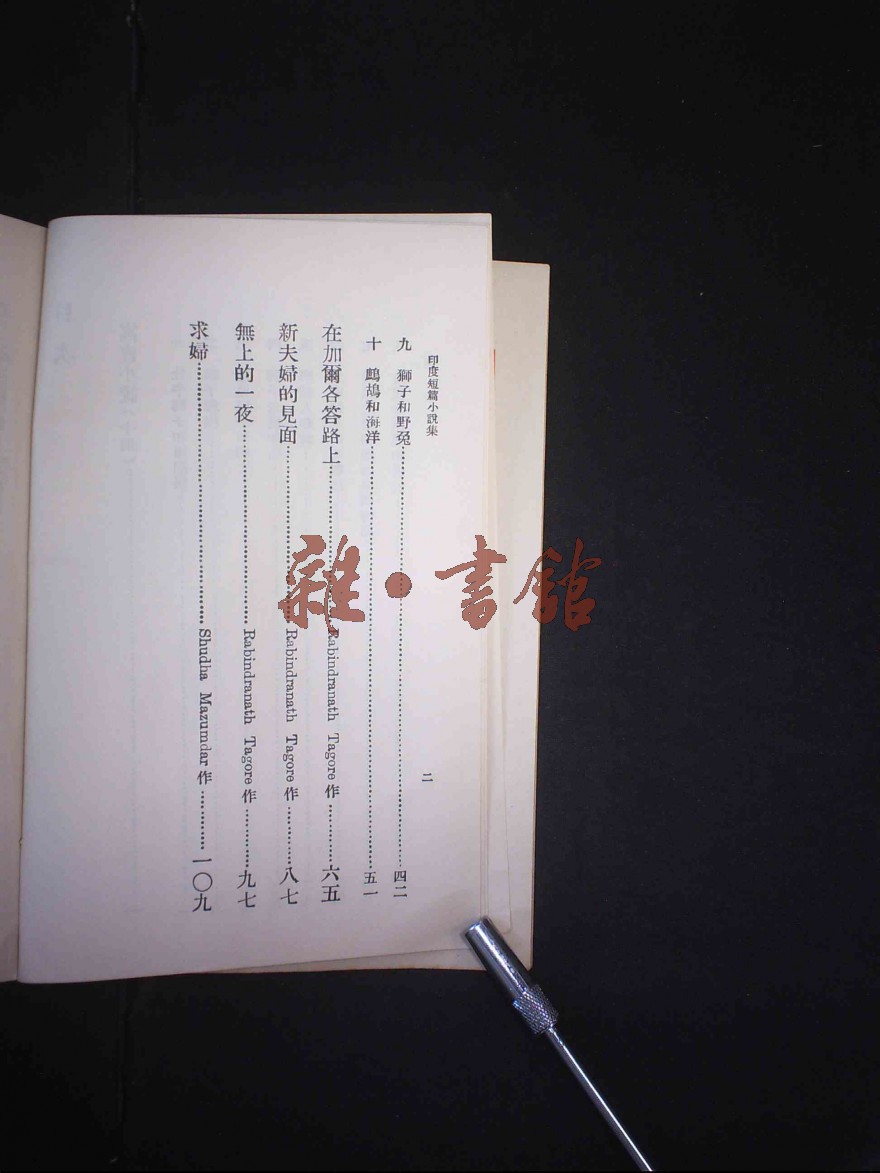 印度短篇小說集
二
九 獅子和野兔 四二
十 鷓鴣和海洋 五一
在加爾各答路上 Rabindranath Tagore 作 六五
新夫婦的見面 Rabindranath Tagore 作 八七
無上的一夜 Rabindranath Tagore 作 九七
求婦 Shudha Mazumdar 作 一〇九
雜·書館